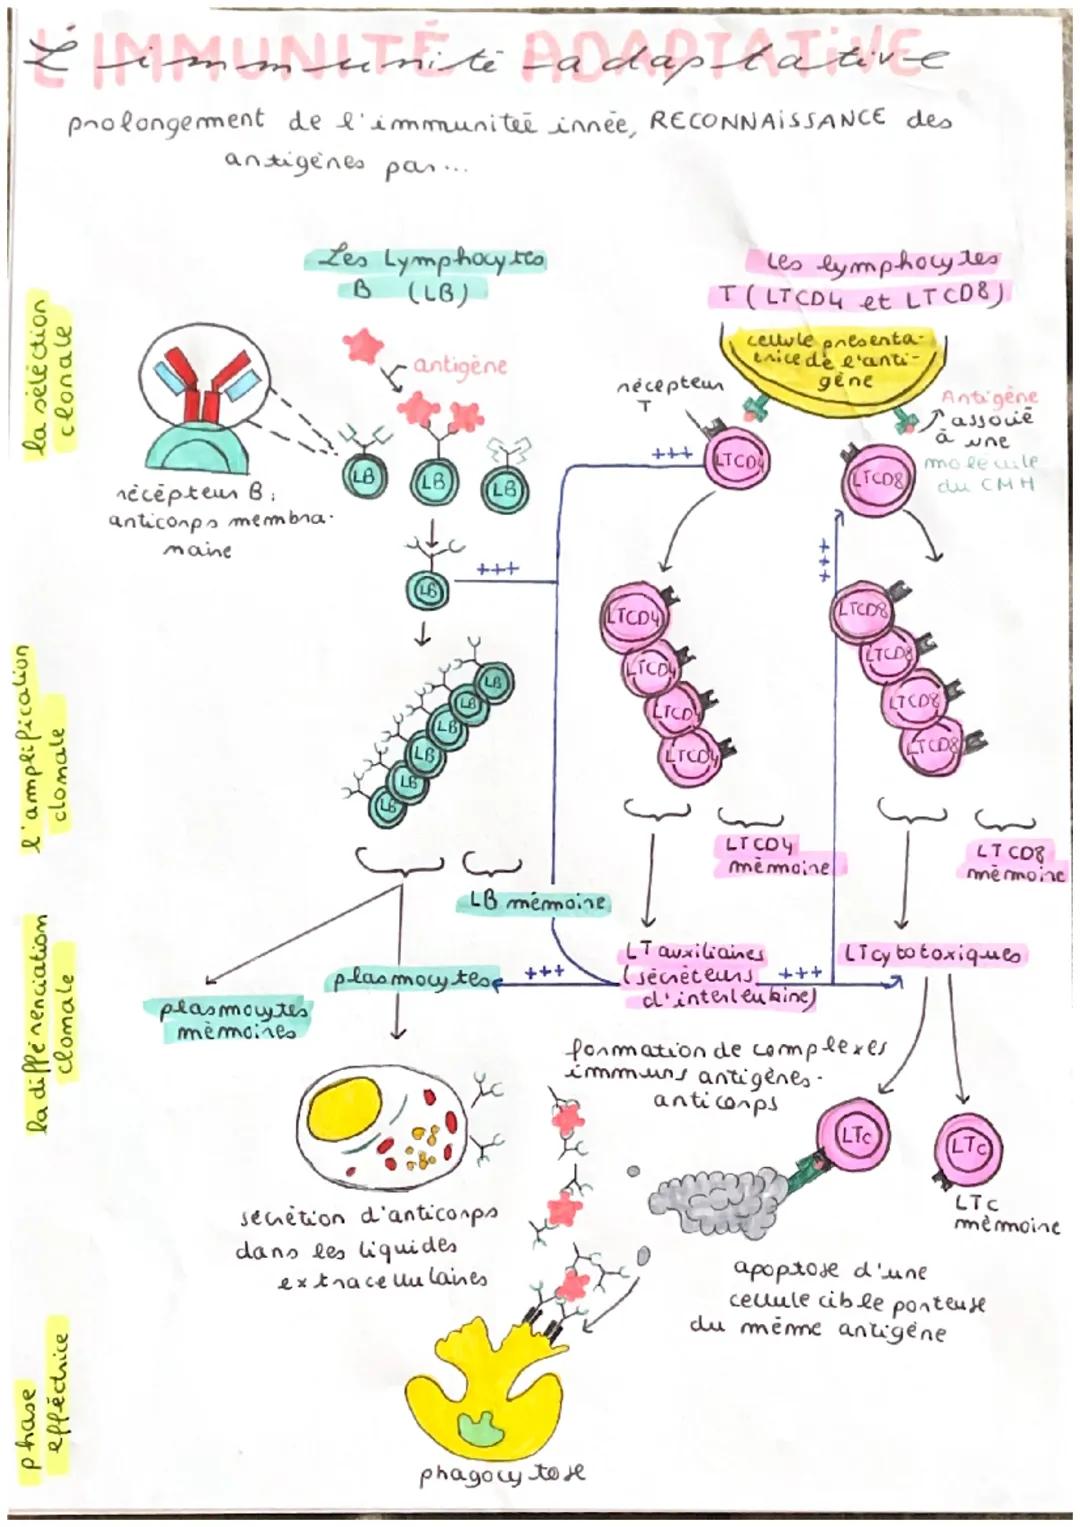 L'IMMUNITÉ ADAPTATIVE
L'immunité adaptative
prolongement de l'immunitée innée, RECONNAISSANCE des
antigènes par...
Les Lymphocytes
B (LB)
Les lymphocytes
T (LTCD4 et LTCD8)
la sélection
clonale
antigène
cellule présenta-
trice de l'anti-
gène
récepteur
T
Antigène
associé
à une
molécule
du CMH
LB
LB
LB
+++
LTCD4
LTCD8
récepteur B:
anticorps membra-
naire
LB
+++
+++
l'amplification
clonale
LB
LB
LB
LB
LB
LB
LTCD4
LTCD4
LTCD4
LTCD4
LTCD8
LTCD8
LTCD8
LTCD8
LTCD4
mémoire
LTCD8
mémoire
LB mémoire
la différenciation
clonale
plasmocytes
mémoires
plasmocytes
+++
LT auxiliaires
(sécréteurs
d'interleukine)
+++
LTcytotoxiques
formation de complexes
immuns antigènes-
anticorps
LTc
LTc
LTc
mémoire
sécrétion d'anticorps
dans les liquides
extracellulaires
apoptose d'une
cellule cible porteuse
du même antigène
phase
efféctrice
phagocytose